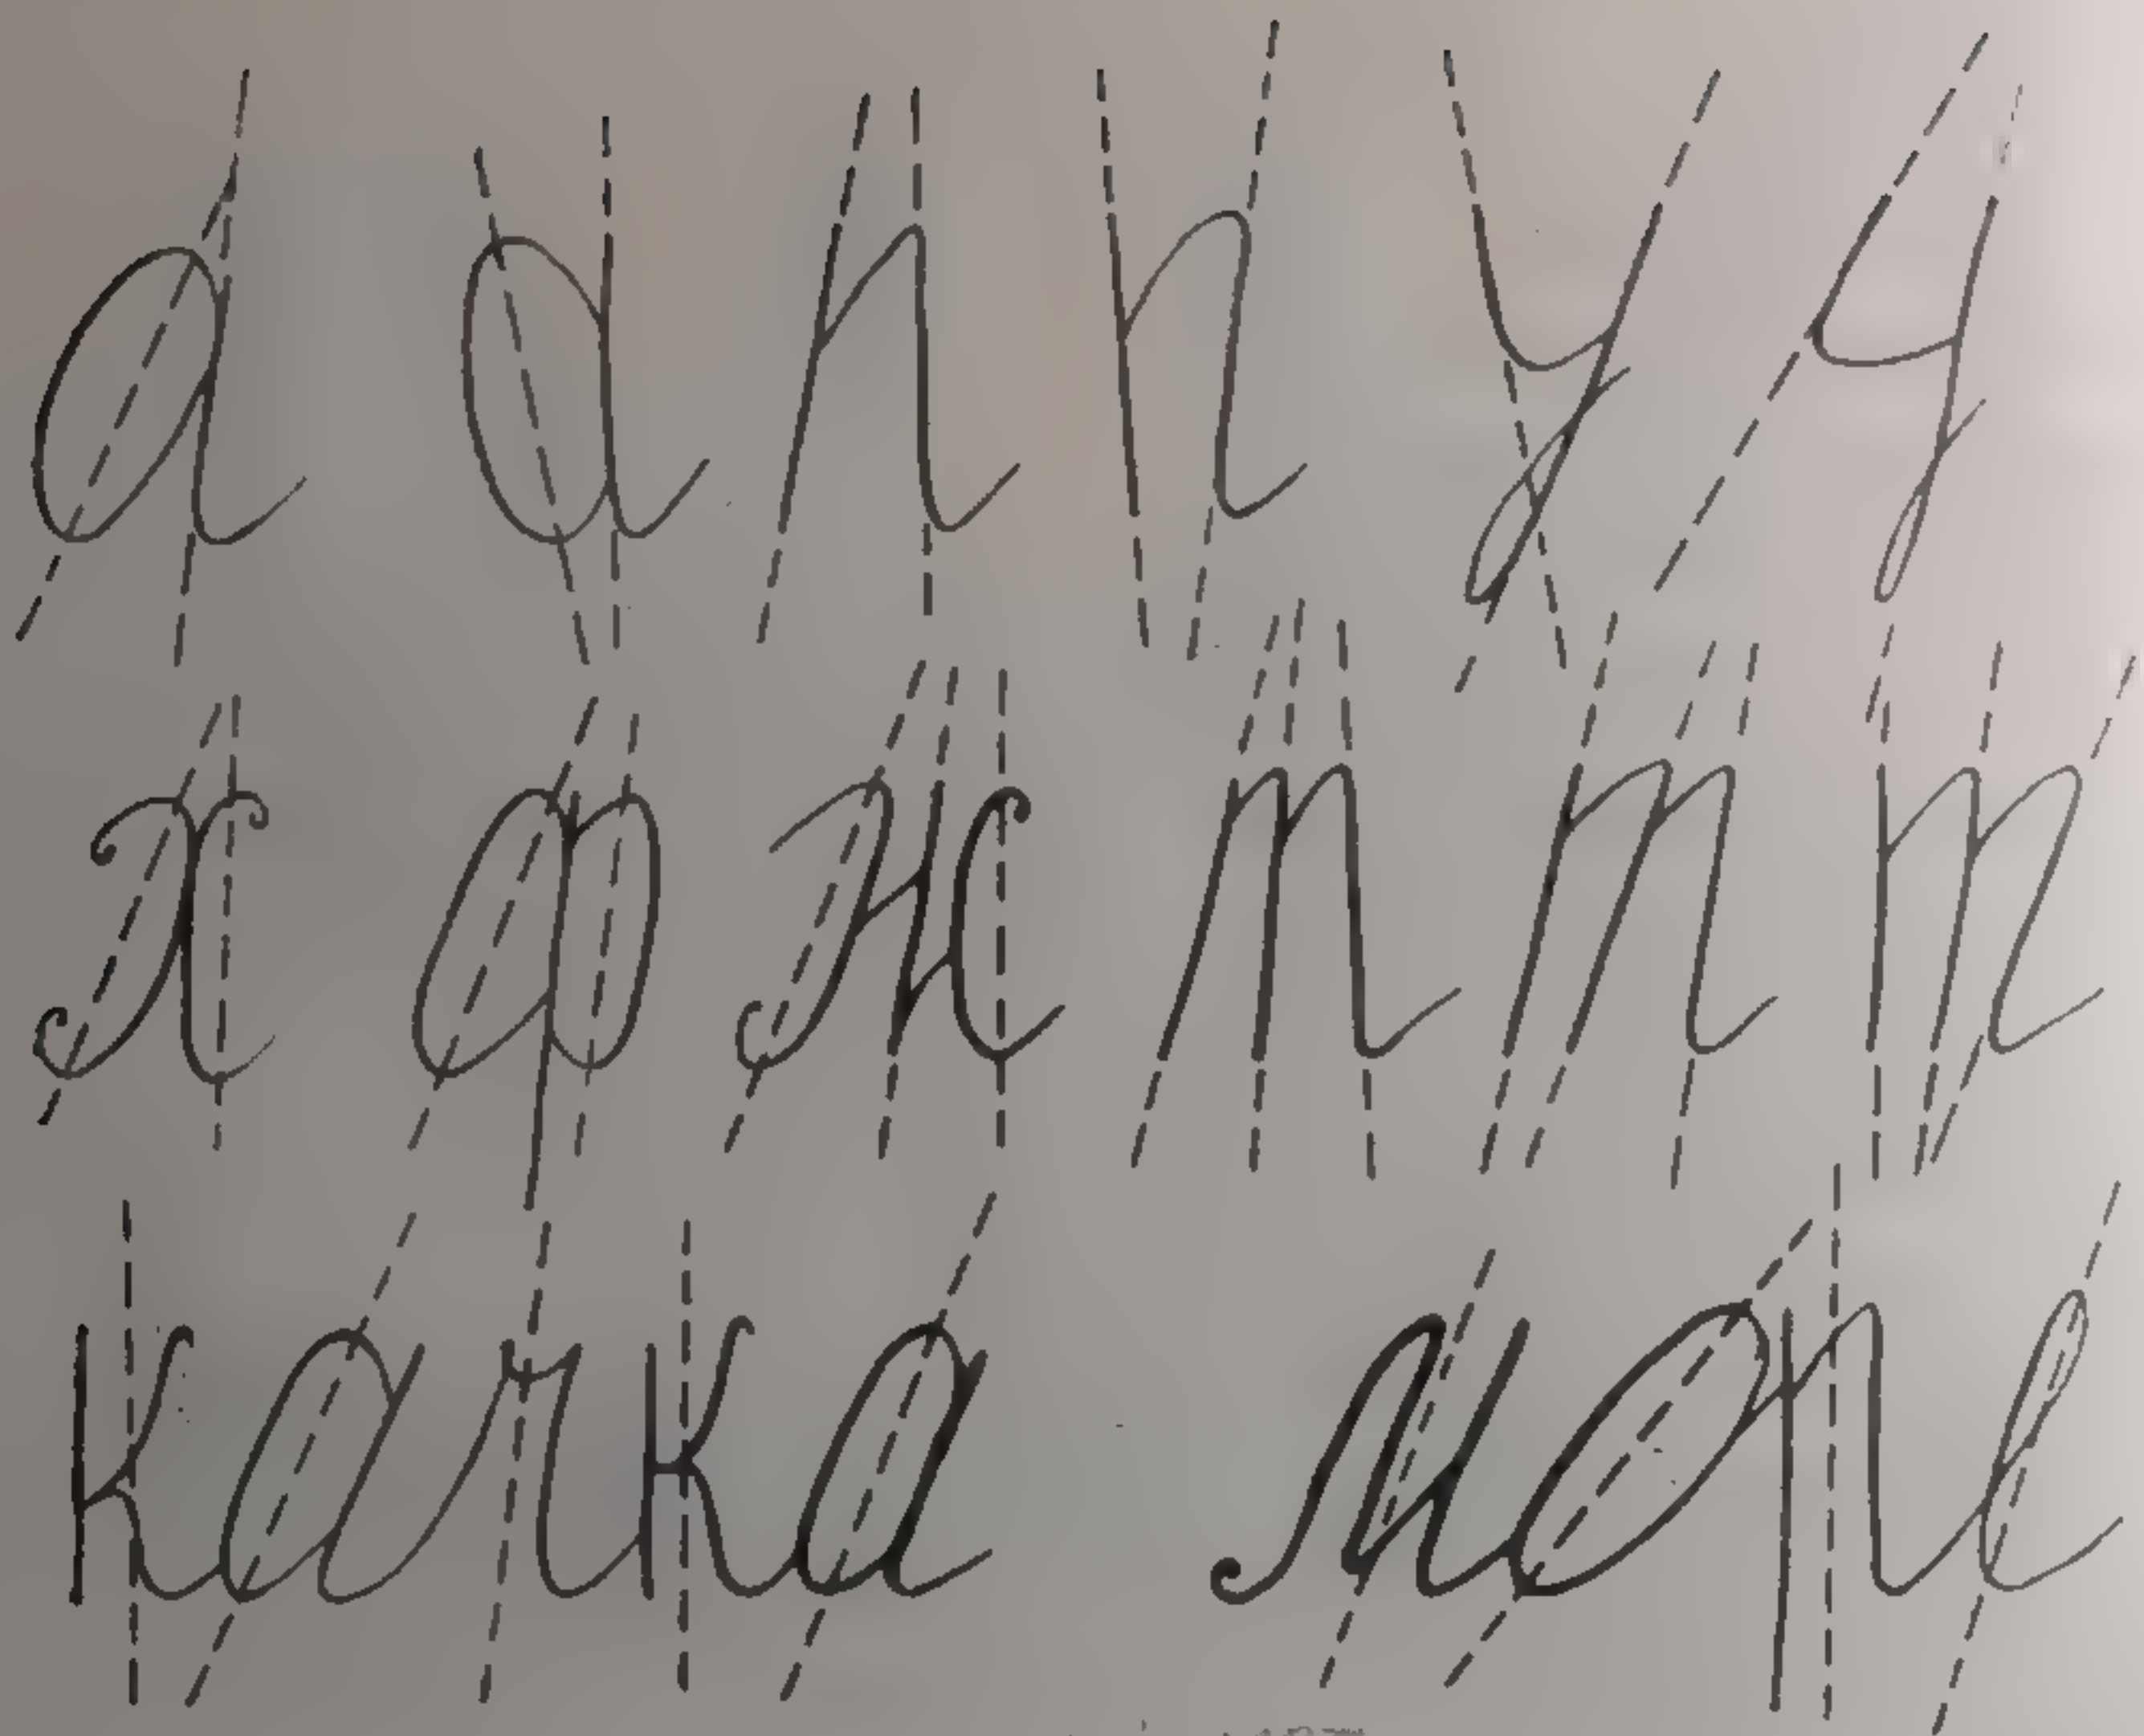 а а п п у у
х ф ж т т т
качка море